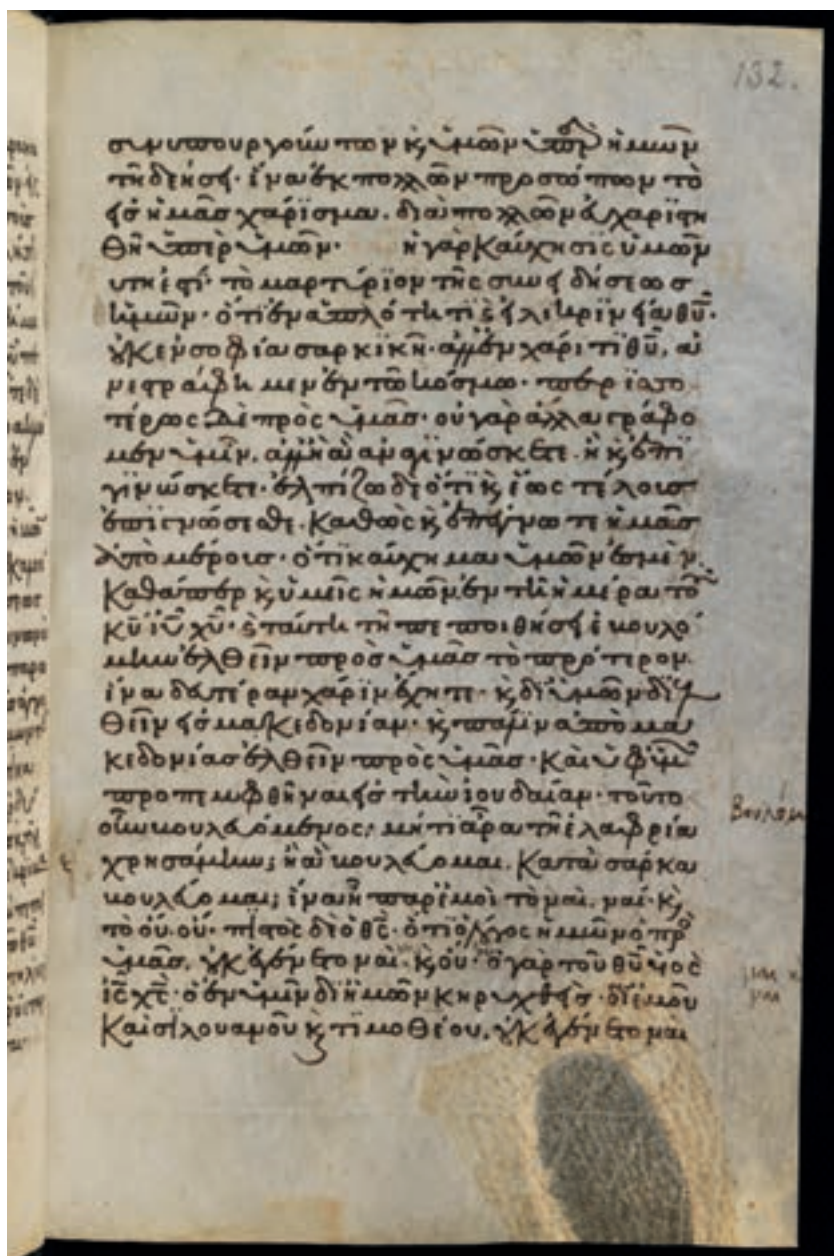 132.
συνυπουργούντων κ, ὑμῶν ὑπὲρ ἡμῶν
τῆ δεήσει· ἵνα ἐκ πολλῶν προσώπων τὸ
εἰς ἡμᾶς χάρισμα, διὰ πολλῶν εὐχαριστη
θῆ ὑπὲρ ὑμῶν· ἡ γὰρ Καύχησις ὑμῶν
αὕτη ἐστί· τὸ μαρτύριον τῆς συνειδήσεως
ἡμῶν· ὅτι ἐν ἁπλότητι κ, εἰλικρινεία θῦ·
οὐκ ἐν σοφία σαρκικῆ· ἀλλ' ἐν χάριτι θῦ, ἀ
νεστράφημεν ἐν τῶ κόσμω· περισσο
τέρως δὲ πρὸς ὑμᾶς· οὐ γὰρ ἄλλα γράφο
μεν ὑμῖν, ἀλλ' ἢ ἃ ἀναγινώσκετε· ἢ κ, ἐπι
γινώσκετε· ἐλπίζω δὲ ὅτι κ, ἕως τέλους
ἐπιγνώσεσθε. Καθὼς κ, ἐπέγνωτε ἡμᾶς
ἀπὸ μέρους· ὅτι καύχημα ὑμῶν ἐσμὲν
Καθάπερ κ, ὑμεῖς ἡμῶν ἐν τῆ ἡμέρα τοῦ
κῦ ἰῦ χῦ· κ, ταύτη τῆ πεποιθήσει ἐβουλό
μην ἐλθεῖν πρὸς ὑμᾶς τὸ πρότερον.
ἵνα δευτέραν χάριν ἔχητε· κ, δι' ὑμῶν διελ
θεῖν εἰς μακεδονίαν· κ, πάλιν ἀπὸ μα
κεδονίας ἐλθεῖν πρὸς ὑμᾶς· Καὶ ὑφ' ὑμῶν
προπεμφθῆναι εἰς τὴν ἰουδαίαν· τοῦτο
οὖν βουλευόμενος; μήτι ἄρα τῆ ἐλαφρία
χρησάμην; ἢ ἃ βουλεύομαι, Κατὰ σάρκα
βουλεύομαι; ἵνα ἦ παρ' ἐμοὶ τὸ ναὶ, ναί· κ,
τὸ οὐ, οὐ· πιστὸς δὲ ὁ θς· ὅτι ὁ λόγος ἡμῶν ὁ πρὸς
ὑμᾶς, οὐκ ἐγένετο ναὶ κ, οὐ· ὁ γὰρ τοῦ θῦ υἱὸς
ις χς· ὁ ἐν ὑμῖν δι' ἡμῶν κηρυχθείς· δι' ἐμοῦ
Καὶ σιλουανοῦ κ, τιμοθέου, οὐκ ἐγένετο ναὶ